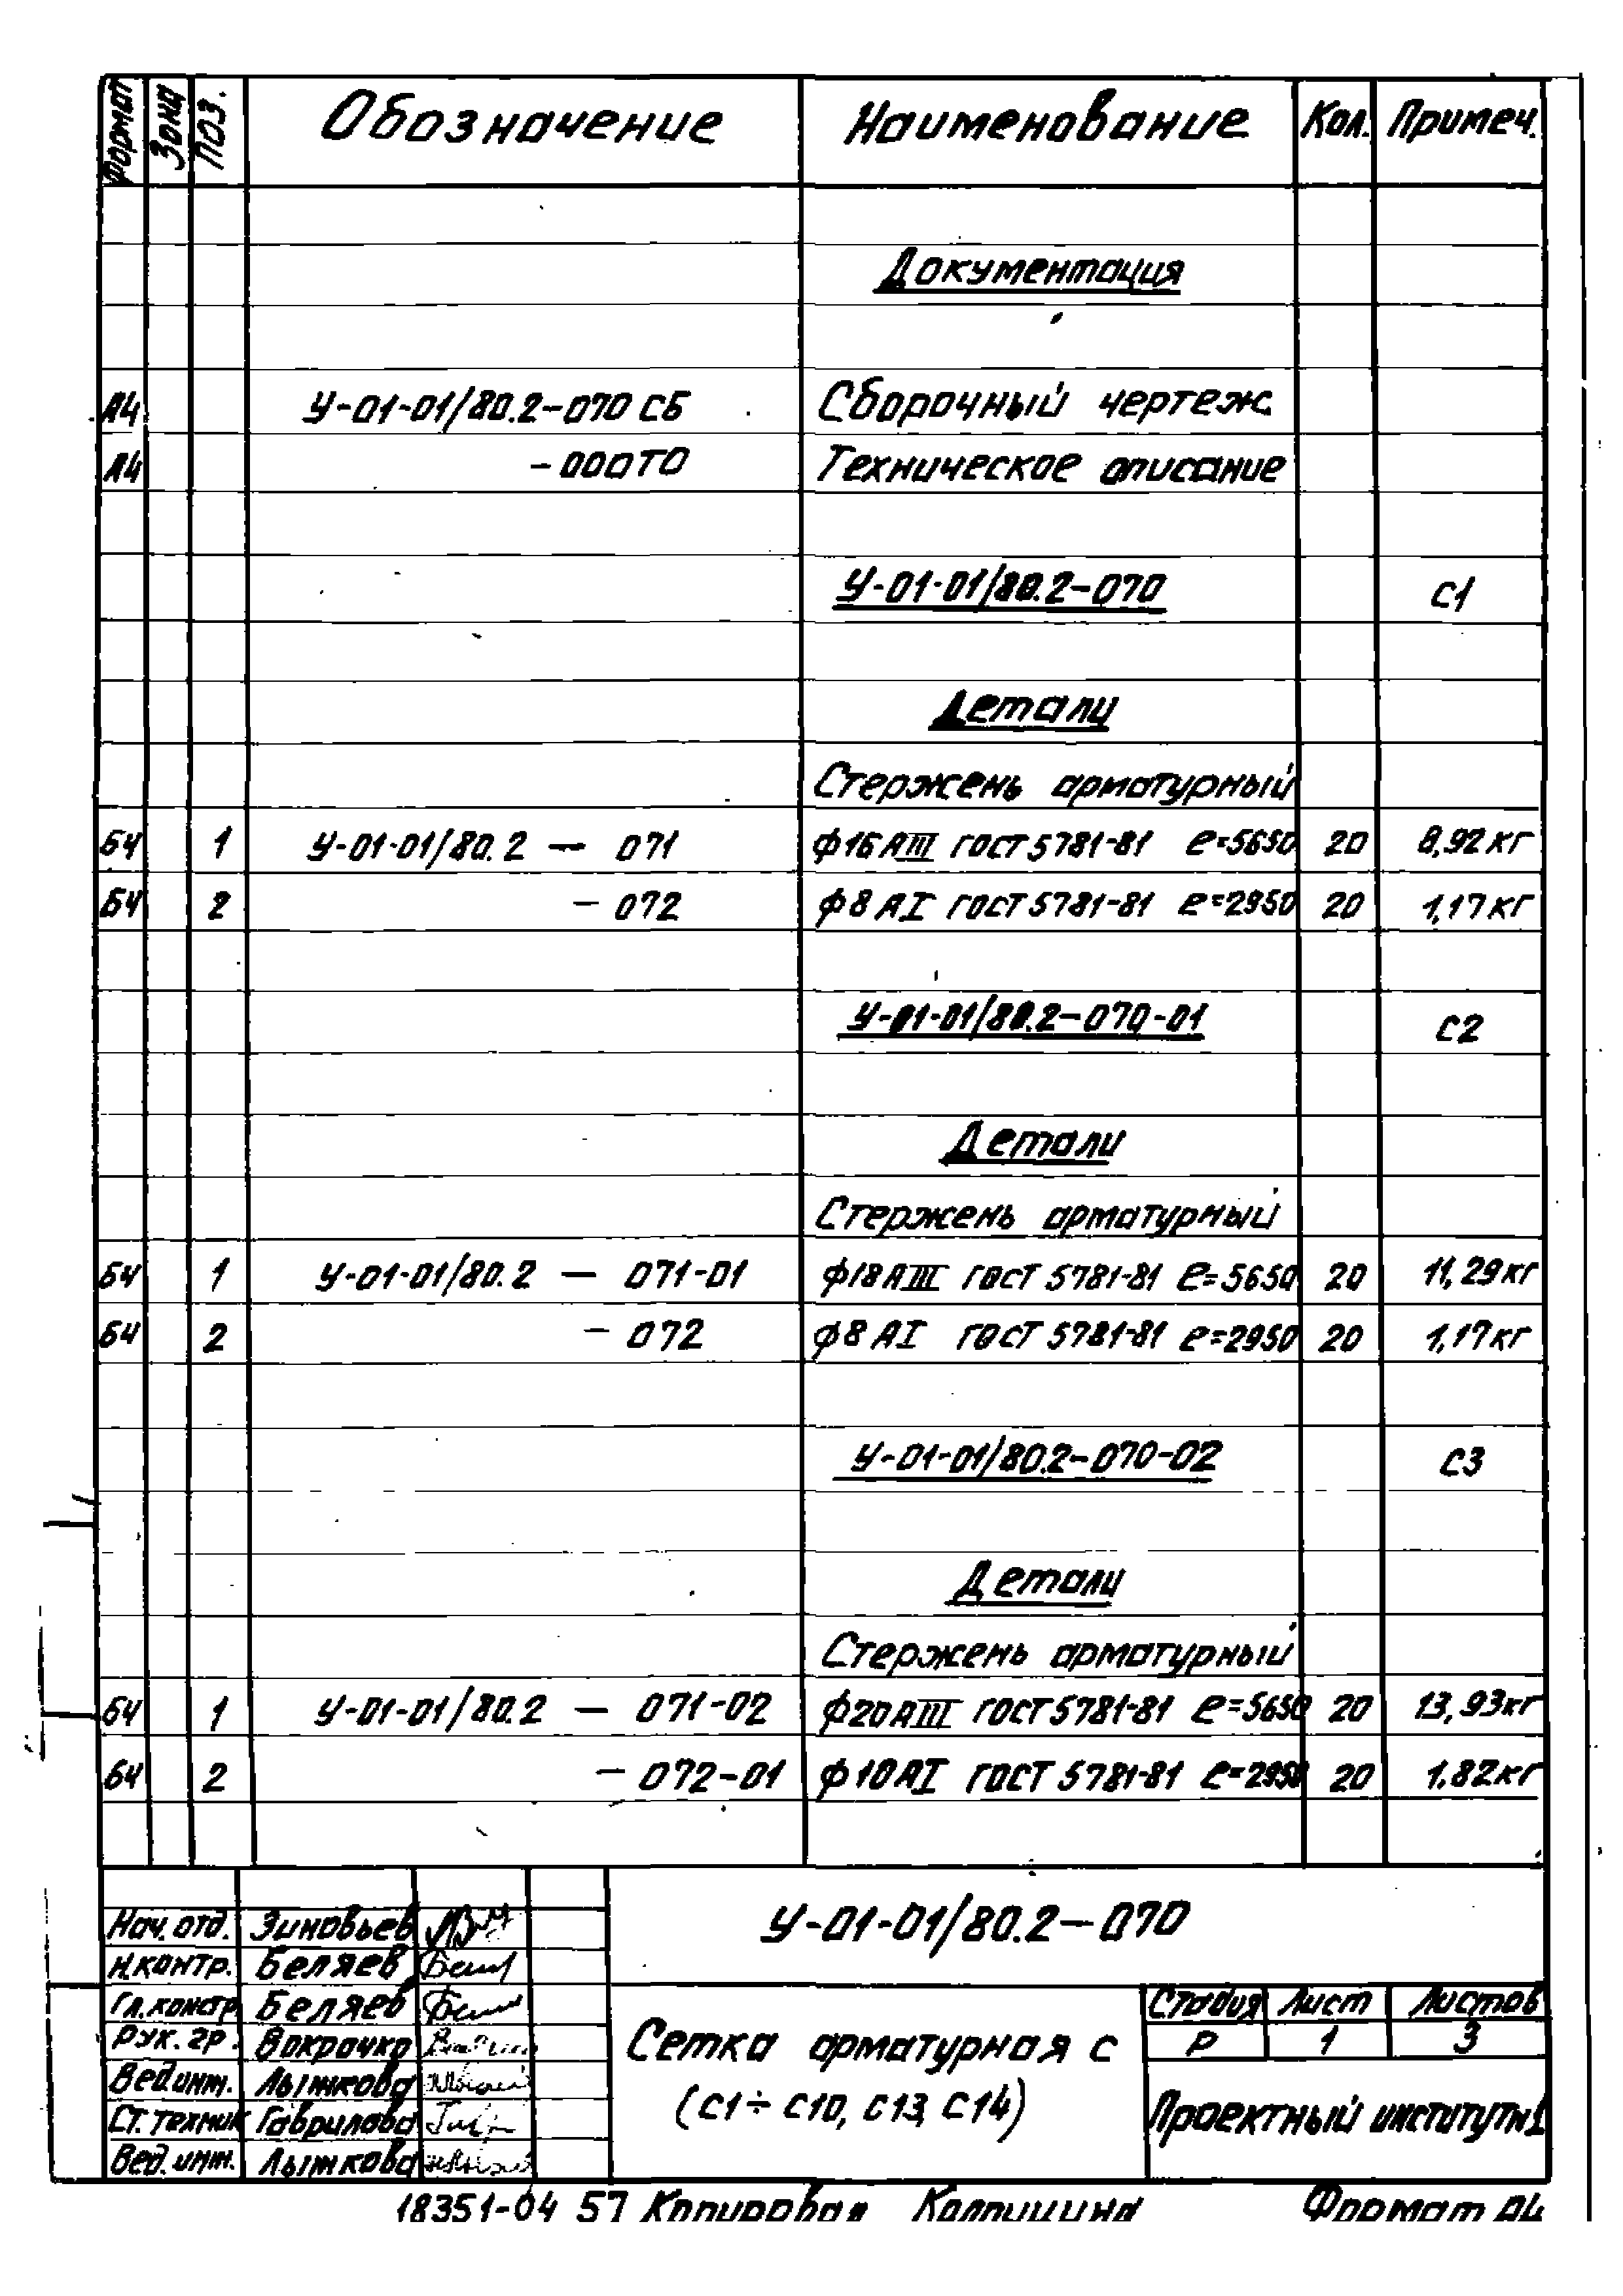 Формат Зона Поз. Обозначение Наименование Кол. Примеч.
Документация
А4 У-01-01/80.2-070 СБ Сборочный чертеж
А4 -000ТО Техническое описание
У-01-01/80.2-070 С1
Детали
Стержень арматурный
БЧ 1 У-01-01/80.2 — 071 ф16АIII ГОСТ 5781-81 ℓ=5650 20 8,92кг
БЧ 2 - 072 ф8АI ГОСТ 5781-81 ℓ=2950 20 1,17кг
У-01-01/80.2-070-01 С2
Детали
Стержень арматурный
БЧ 1 У-01-01/80.2 — 071-01 ф18АIII ГОСТ 5781-81 ℓ=5650 20 11,29кг
БЧ 2 - 072 ф8АI ГОСТ 5781-81 ℓ=2950 20 1,17кг
У-01-01/80.2-070-02 С3
Детали
Стержень арматурный
БЧ 1 У-01-01/80.2 — 071-02 ф20АIII ГОСТ 5781-81 ℓ=5650 20 13,93кг
БЧ 2 - 072-01 ф10АI ГОСТ 5781-81 ℓ=2950 20 1,82кг
У-01-01/80.2-070
Нач.отд. Зиновьев
Н.контр. Беляев
Гл.констр. Беляев
Рук. гр. Вокрачко
Вед.инж. Лыжкова
Ст.техник Гаврилова
Вед.инж. Лыжкова
Сетка арматурная С
(С1÷С10, С13, С14)
Стадия Лист Листов
Р 1 3
Проектный институт№1
18351-04 57 Копировая Колпищина Формат А4